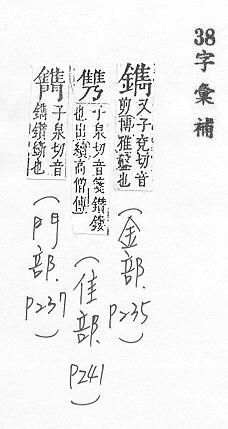 38字彙補
鐫 又子兗切音
剪博雅鋻也
(金部. P235)
子泉切音箋鑽鏺
也出續高僧傳
(隹部. P241)
子泉切音
鐫鑽斲也
(門部. P237)